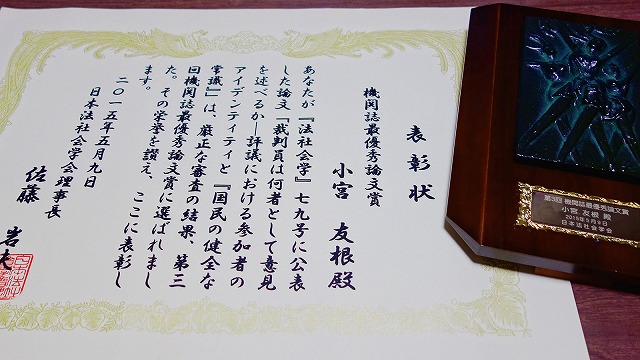 表彰状
機関誌最優秀論文賞
小宮 友根 殿
あなたが『法社会学』七九号に公表
した論文「裁判員は何者として意見
を述べるか―評議における参加者の
アイデンティティと『国民の健全な
常識』」は、厳正な審査の結果、第三
回機関誌最優秀論文賞に選ばれまし
た。その栄誉を讃え、ここに表彰し
ます。
二〇一五年五月九日
日本法社会学会理事長
佐藤 岩夫
第3回 機関誌最優秀論文賞
小宮 友根 殿
2015年5月9日
日本法社会学会